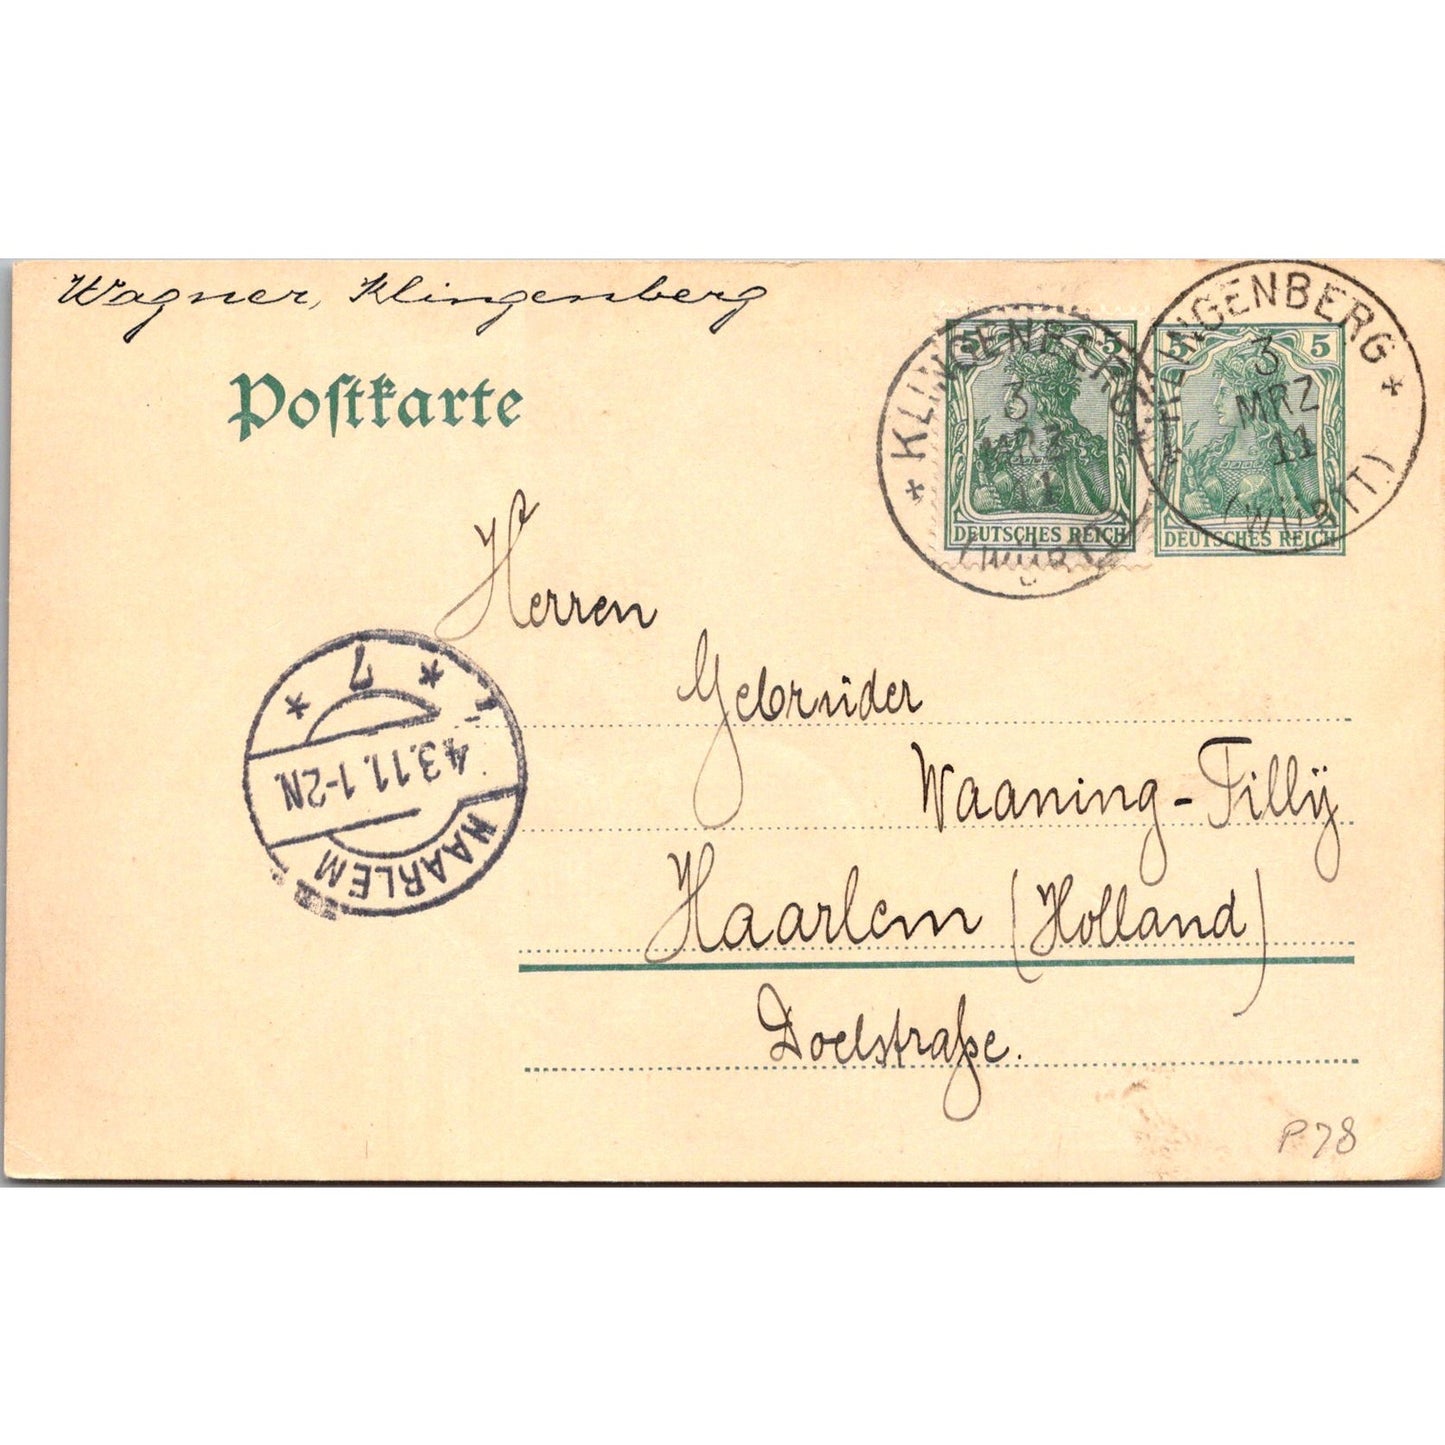 Wagner, Klingenberg
Postkarte
* KLINGENBERG *
3
MRZ
11
(WÜRTT)
5 5
DEUTSCHES REICH
* KLINGENBERG *
3
MRZ
11
(WÜRTT)
5 5
DEUTSCHES REICH
Herren
Gebrüder
Waaning-Tillÿ
Haarlem (Holland)
Doelstraße.
* 7 *
4.3.11.1-2N
HAARLEM
P78